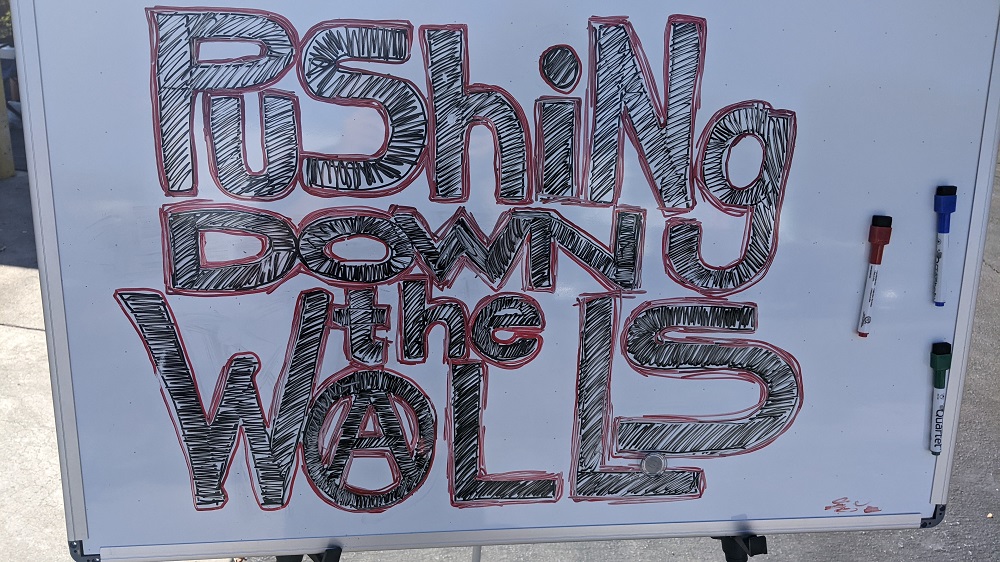 PUShiNg
DOWN
the
WALLS
Quartet